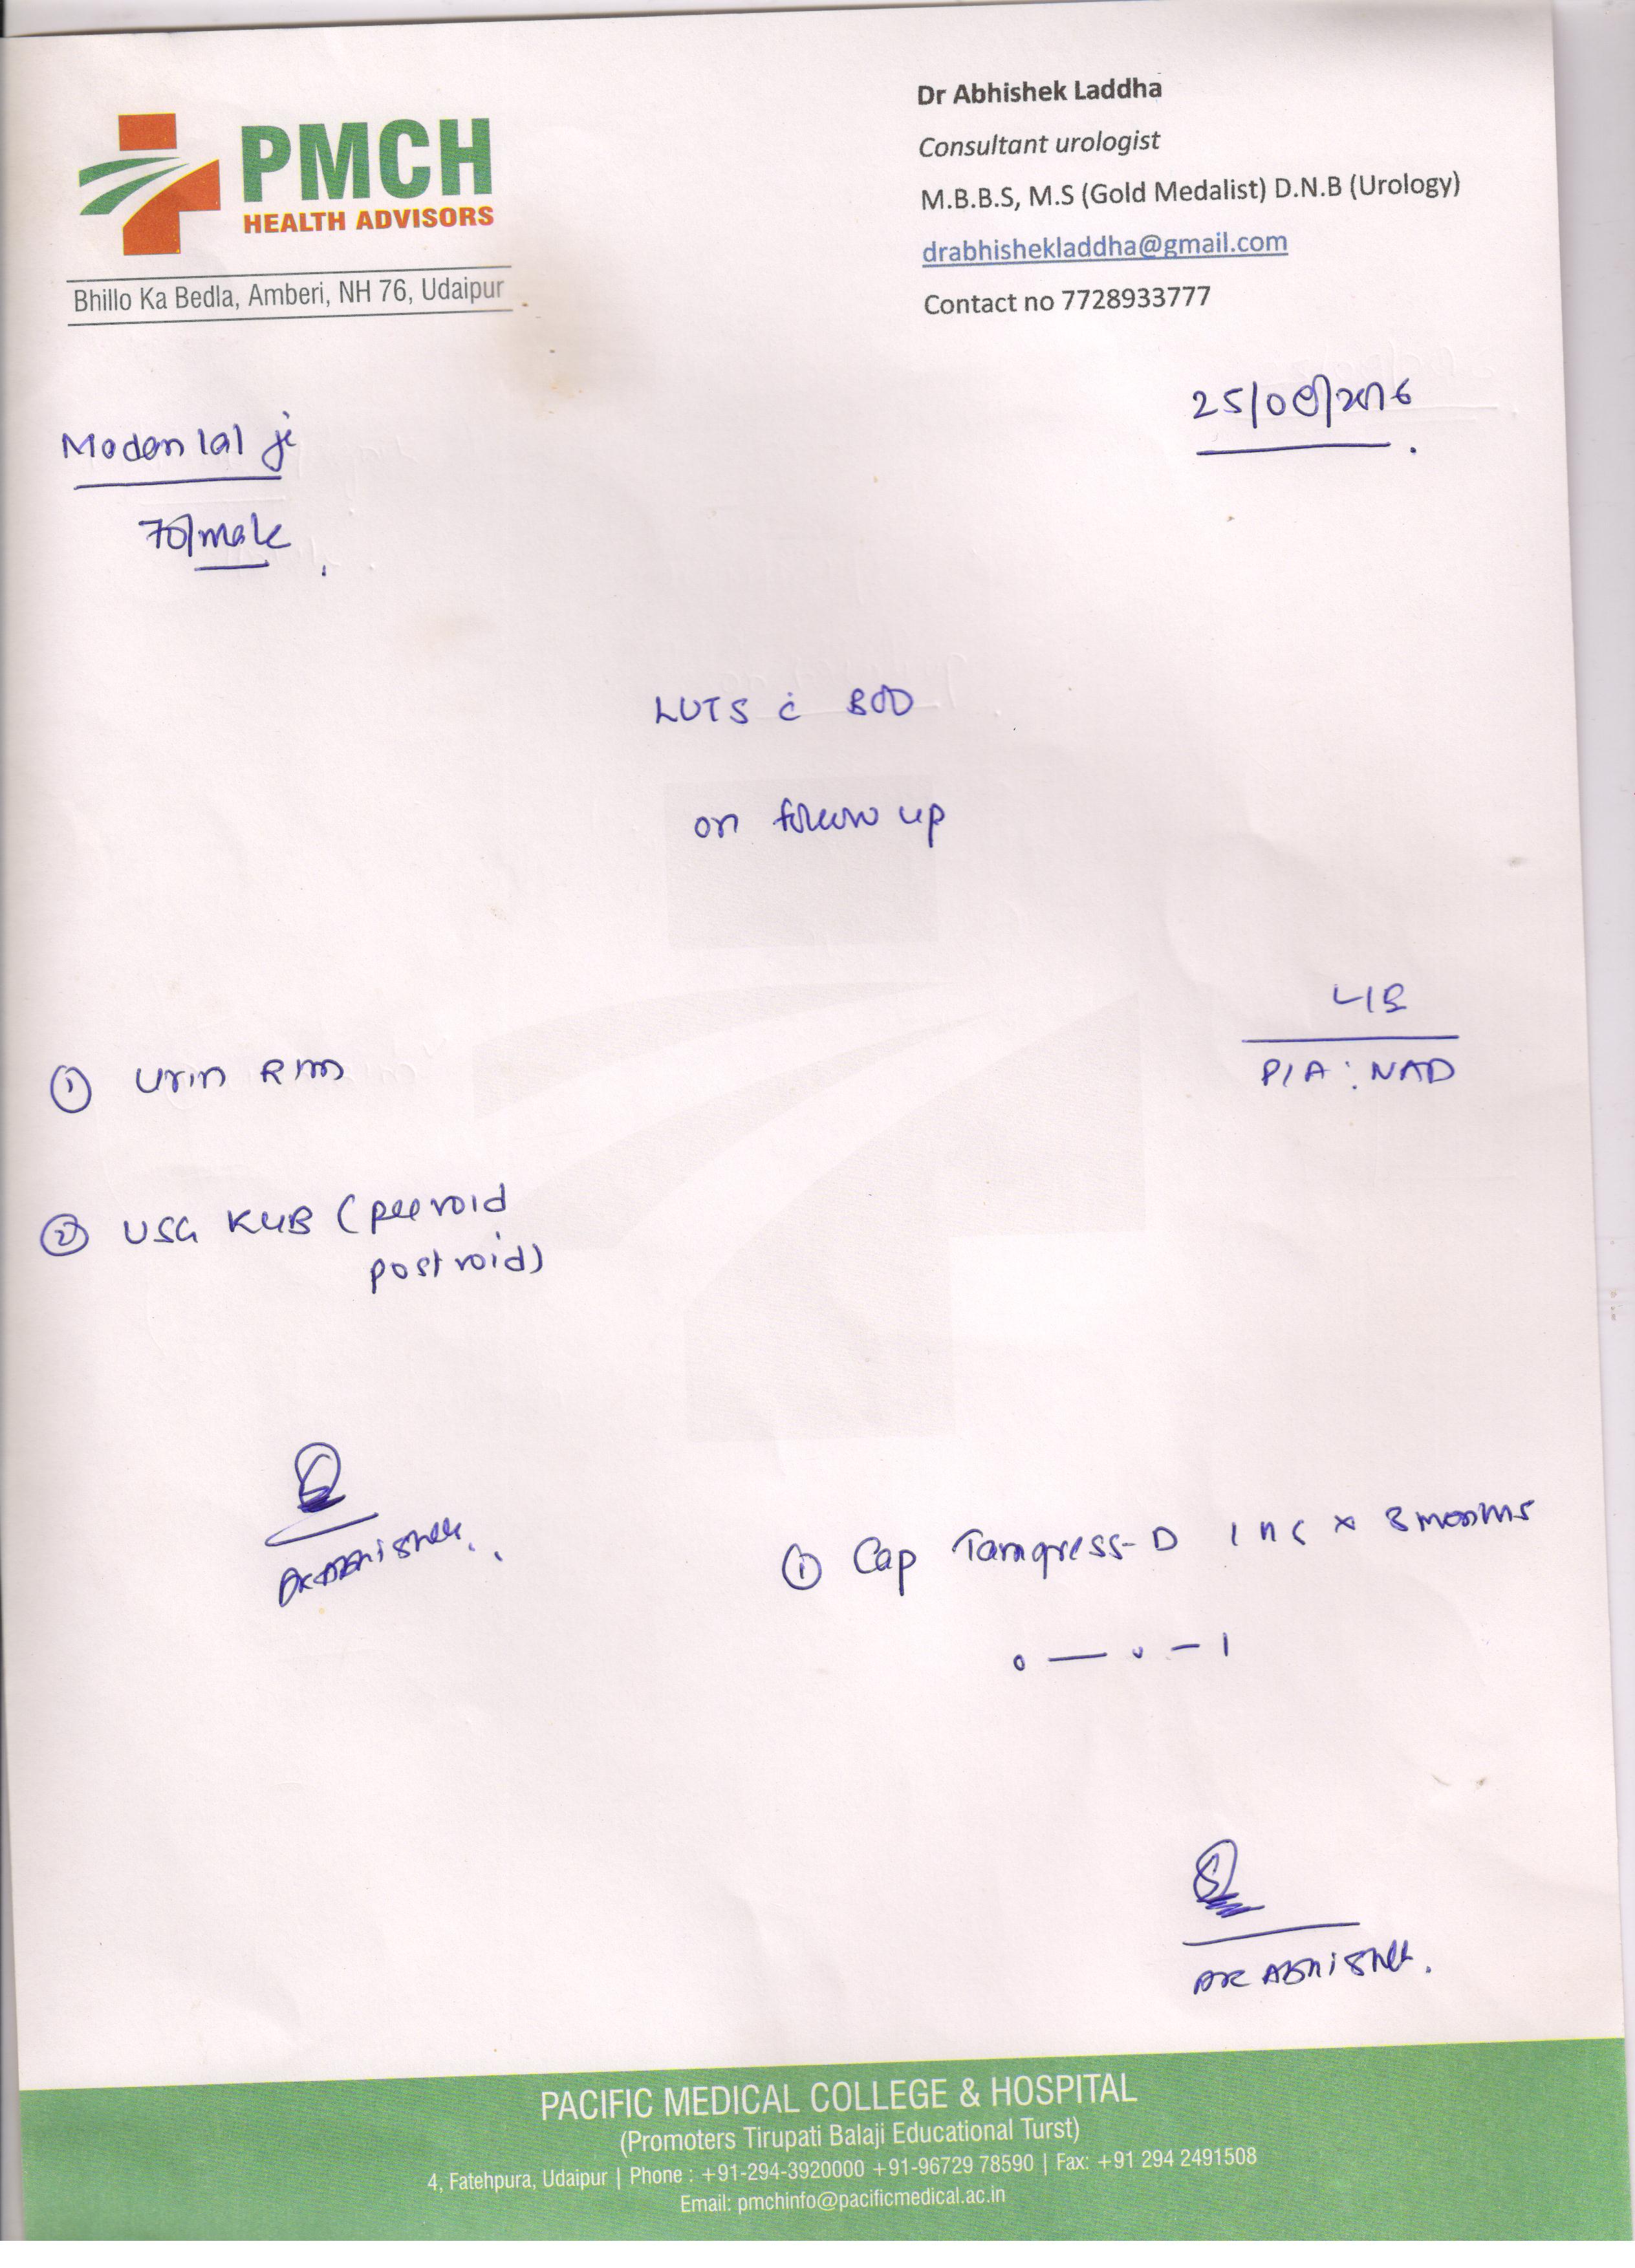 PMCH
HEALTH ADVISORS
Bhillo Ka Bedla, Amberi, NH 76, Udaipur
Dr Abhishek Laddha
Consultant urologist
M.B.B.S, M.S (Gold Medalist) D.N.B (Urology)
drabhishekladdha@gmail.com
Contact no 7728933777
25/08/2016
Madan lal ji
70/male
LUTS c̄ BOO
on follow up
L/E
P/A : NAD
① Urin R/m
② USG KUB (prevoid
postvoid)
Dr Abhishek
① Cap Tamgress-D 1 HS x 3 months
0 — 0 — 1
Dr Abhishek.
PACIFIC MEDICAL COLLEGE & HOSPITAL
(Promoters Tirupati Balaji Educational Turst)
4, Fatehpura, Udaipur | Phone : +91-294-3920000 +91-96729 78590 | Fax: +91 294 2491508
Email: pmchinfo@pacificmedical.ac.in